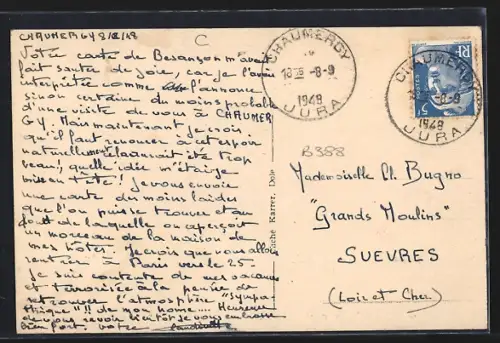 CHAUMERGY 8/8/48
Votre carte de Besançon m'avait
fait sauter de joie, car je l'avais
interprétée comme l'annonce
sinon certaine du moins probable
d'une visite de vous à CHAUMER
GY. Maintenant je crois
qu'il faut renoncer à cet espoir
naturellement c'aurait été trop
beau! quelle idée m'étais-je
mise en tête! Je vous envoie
une carte du moins laides
que l'on puisse trouver et au
de laquelle on aperçoit
un morceau de la maison de
mes hôtes. Je crois que vous allez
rentrer à Paris vers le 25
je suis contente de mes vacances
et terrorisée à la pensée de
retrouver l'atmosphère "sympa
thique"!! de mon home.... Heureuse
de vous revoir bientôt je vous embrasse
bien fort. votre
C
CHAUMERGY
18 -8-9
1948
JURA
RF
POSTES
5F
CHAUMERGY
-8-9
1948
JURA
B388
Mademoiselle Cl. Bugno
"Grands Moulins"
SUEVRES
(Loir et Cher)
Karrer, Dole